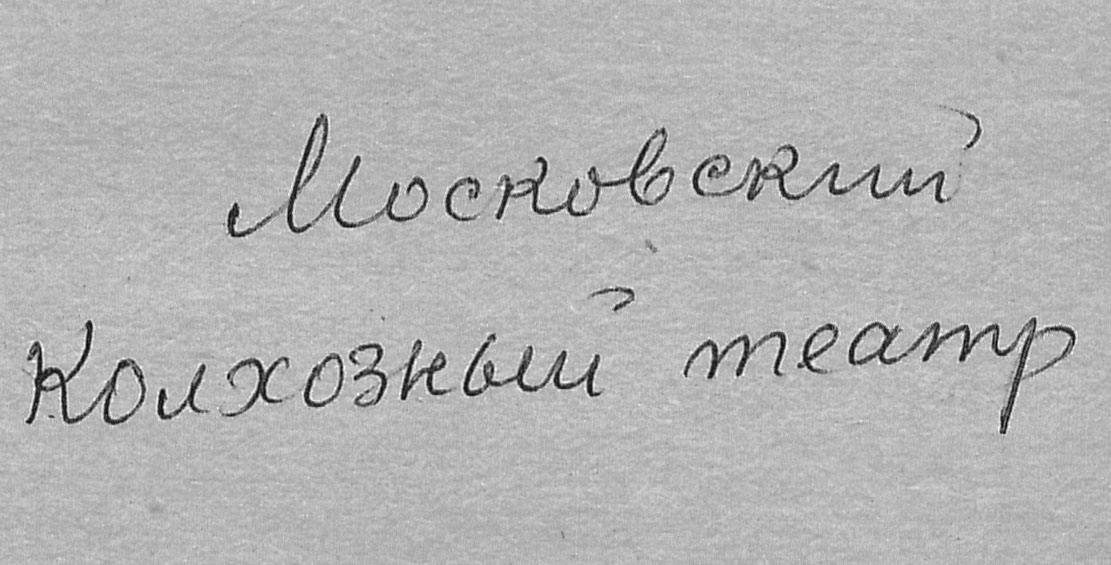 Московский
Колхозный театр